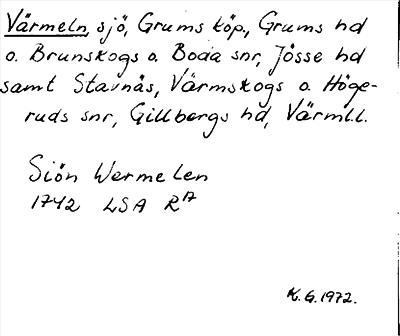 Värmeln, sjö, Grums köp., Grums hd
o. Brunskogs o. Boda snr, Jösse hd
samt Stavnäs, Värmskogs o. Höge-
ruds snr, Gillbergs hd, Värml.l.
Siön Wermelen
1742 LSA R17
K.G.1972.